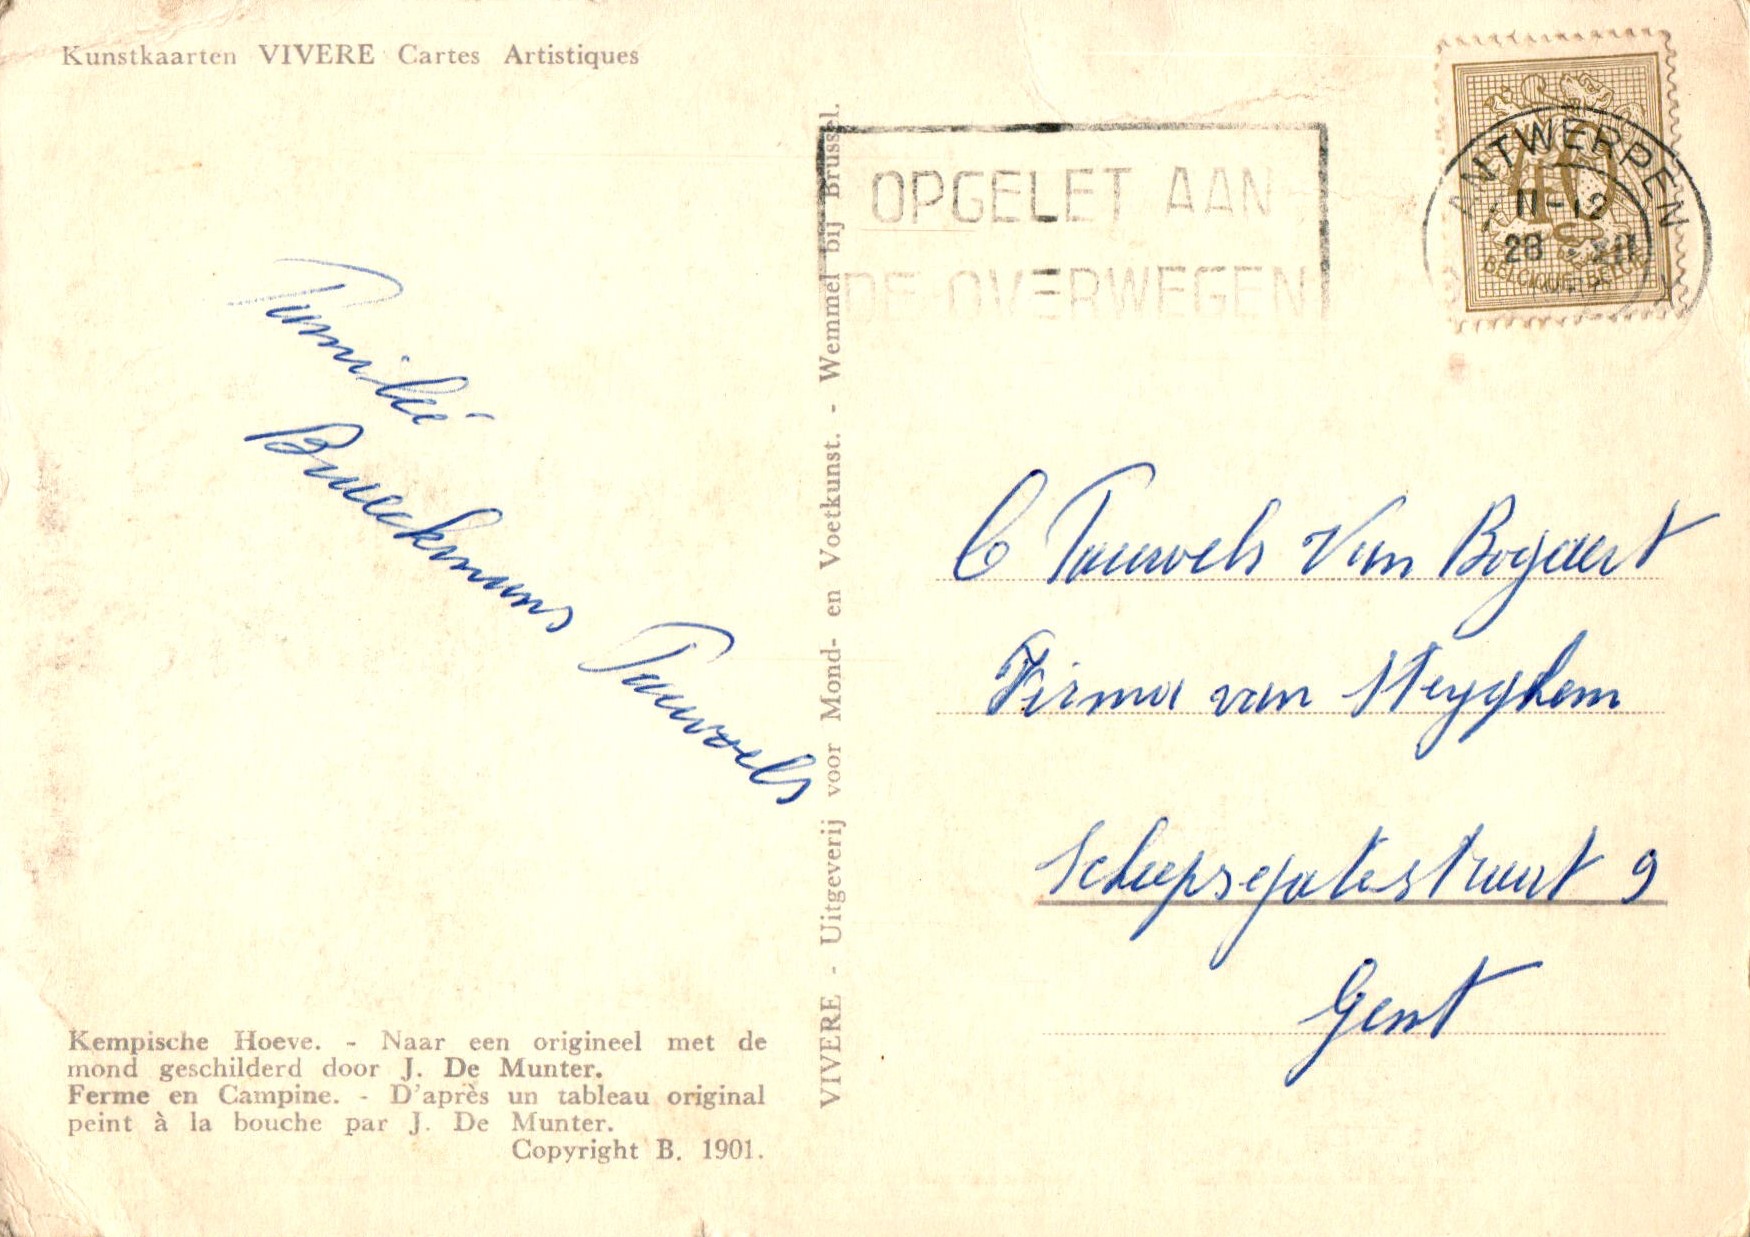 Kunstkaarten VIVERE Cartes Artistiques
OPGELET AAN
DE OVERWEGEN
ANTWERPEN
11-12
28 XII
40
BELGIQUE-BELGIE
Familie
Braeckmans Pauwels
VIVERE - Uitgeverij voor Mond- en Voetkunst. - Wemmel bij Brussel.
C Pauwels Van Bogaert
Firma van Steyghem
Scheepsgatestraat 9
Gent
Kempische Hoeve. - Naar een origineel met de
mond geschilderd door J. De Munter.
Ferme en Campine. - D'après un tableau original
peint à la bouche par J. De Munter.
Copyright B. 1901.